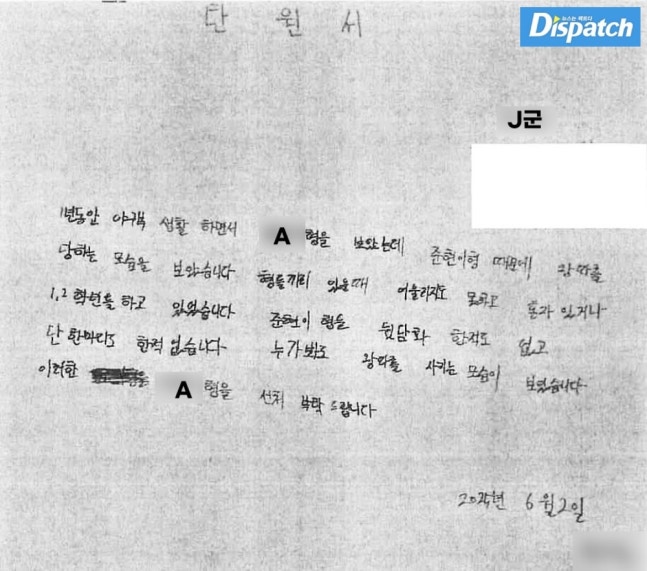 뉴스는 팩트다
Dispatch
탄 원 서
J군
1년동안 야구부 생활 하면서 A 형을 보았는데 준현이형 때문에 왕따를
당하는 모습을 보았습니다 형들끼리 있을때 어울리지도 못하고 혼자 있거나
1,2 학년을 하고 있었습니다 준현이 형을 뒷담화 한적도 없고
단 한마디도 한적 없습니다 누가봐도 왕따를 시키는 모습이 보였습니다
이러한 A 형을 선처 부탁 드립니다
6월 2일